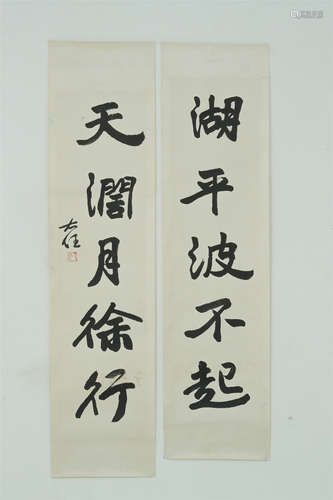 湖平波不起
天濶月徐行
大任